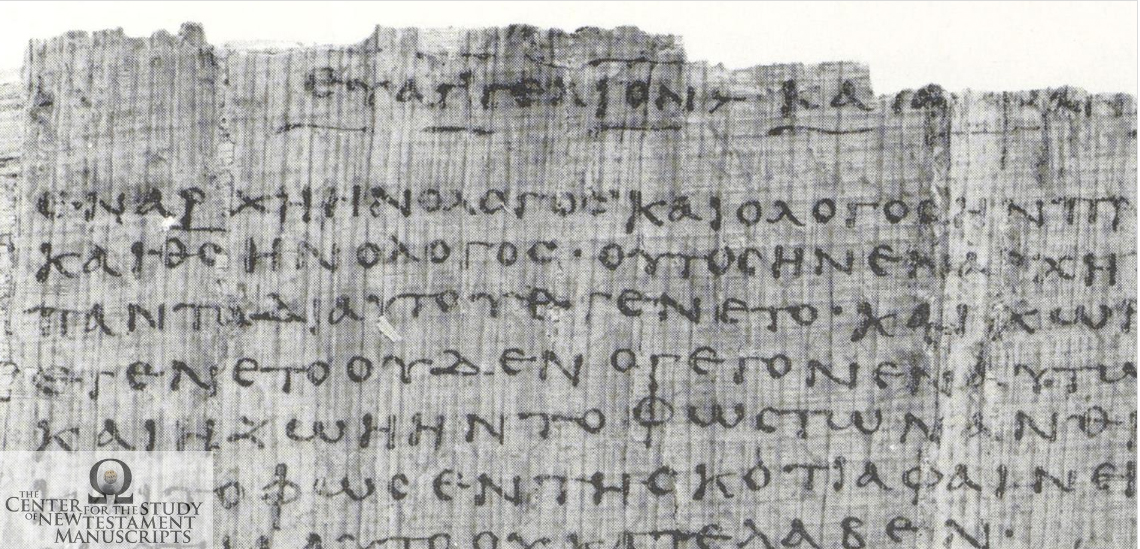 ΕΥΑΓΓΕΛΙΟΝ ΚΑΤΑ
ΕΝΑΡΧΗΗΝΟΛΟΓΟϹΚΑΙΟΛΟΓΟϹΗΝΠΡ
ΚΑΙΘϹΗΝΟΛΟΓΟϹ·ΟΥΤΟϹΗΝΕΝΑΡΧΗ
ΠΑΝΤΑΔΙΑΥΤΟΥΕΓΕΝΕΤΟ·ΚΑΙΧΩΡ
ΕΓΕΝΕΤΟΟΥΔΕΝΟΓΕΓΟΝΕΝΑΥΤΩ
ΚΑΙΗΖΩΗΗΝΤΟΦΩϹΤΩΝΑΝΘΡ
ΤΟΦΩϹΕΝΤΗϹΚΟΤΙΑΦΑΙΝΕΙ
ΑΥΤΟΟΥΚΑΤΕΛΑΒΕΝ·
THE CENTER FOR THE STUDY
OF NEW TESTAMENT
MANUSCRIPTS